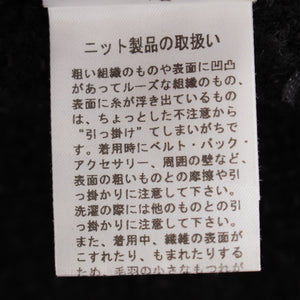 ニット製品の取扱い
粗い組織のものや表面に凹凸
があってルーズな組織のもの、
表面に糸が浮き出ているもの
は、ちょっとした不注意から
“引っ掛け”てしまいがちで
す。着用時にベルト・バック・
アクセサリー、周囲の壁など、
表面の粗いものとの摩擦や引
っ掛かりに注意して下さい。
洗濯の際には他のものとの引
っ掛かりに注意して下さい。
また、着用中、繊維の表面が
こすれたり、もまれたりする
ため、毛羽の小さなもつれが